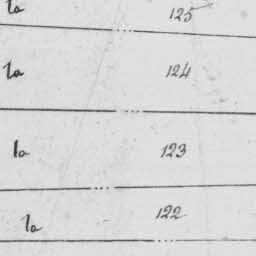 1a 125
1a 124
1a 123
1a 122